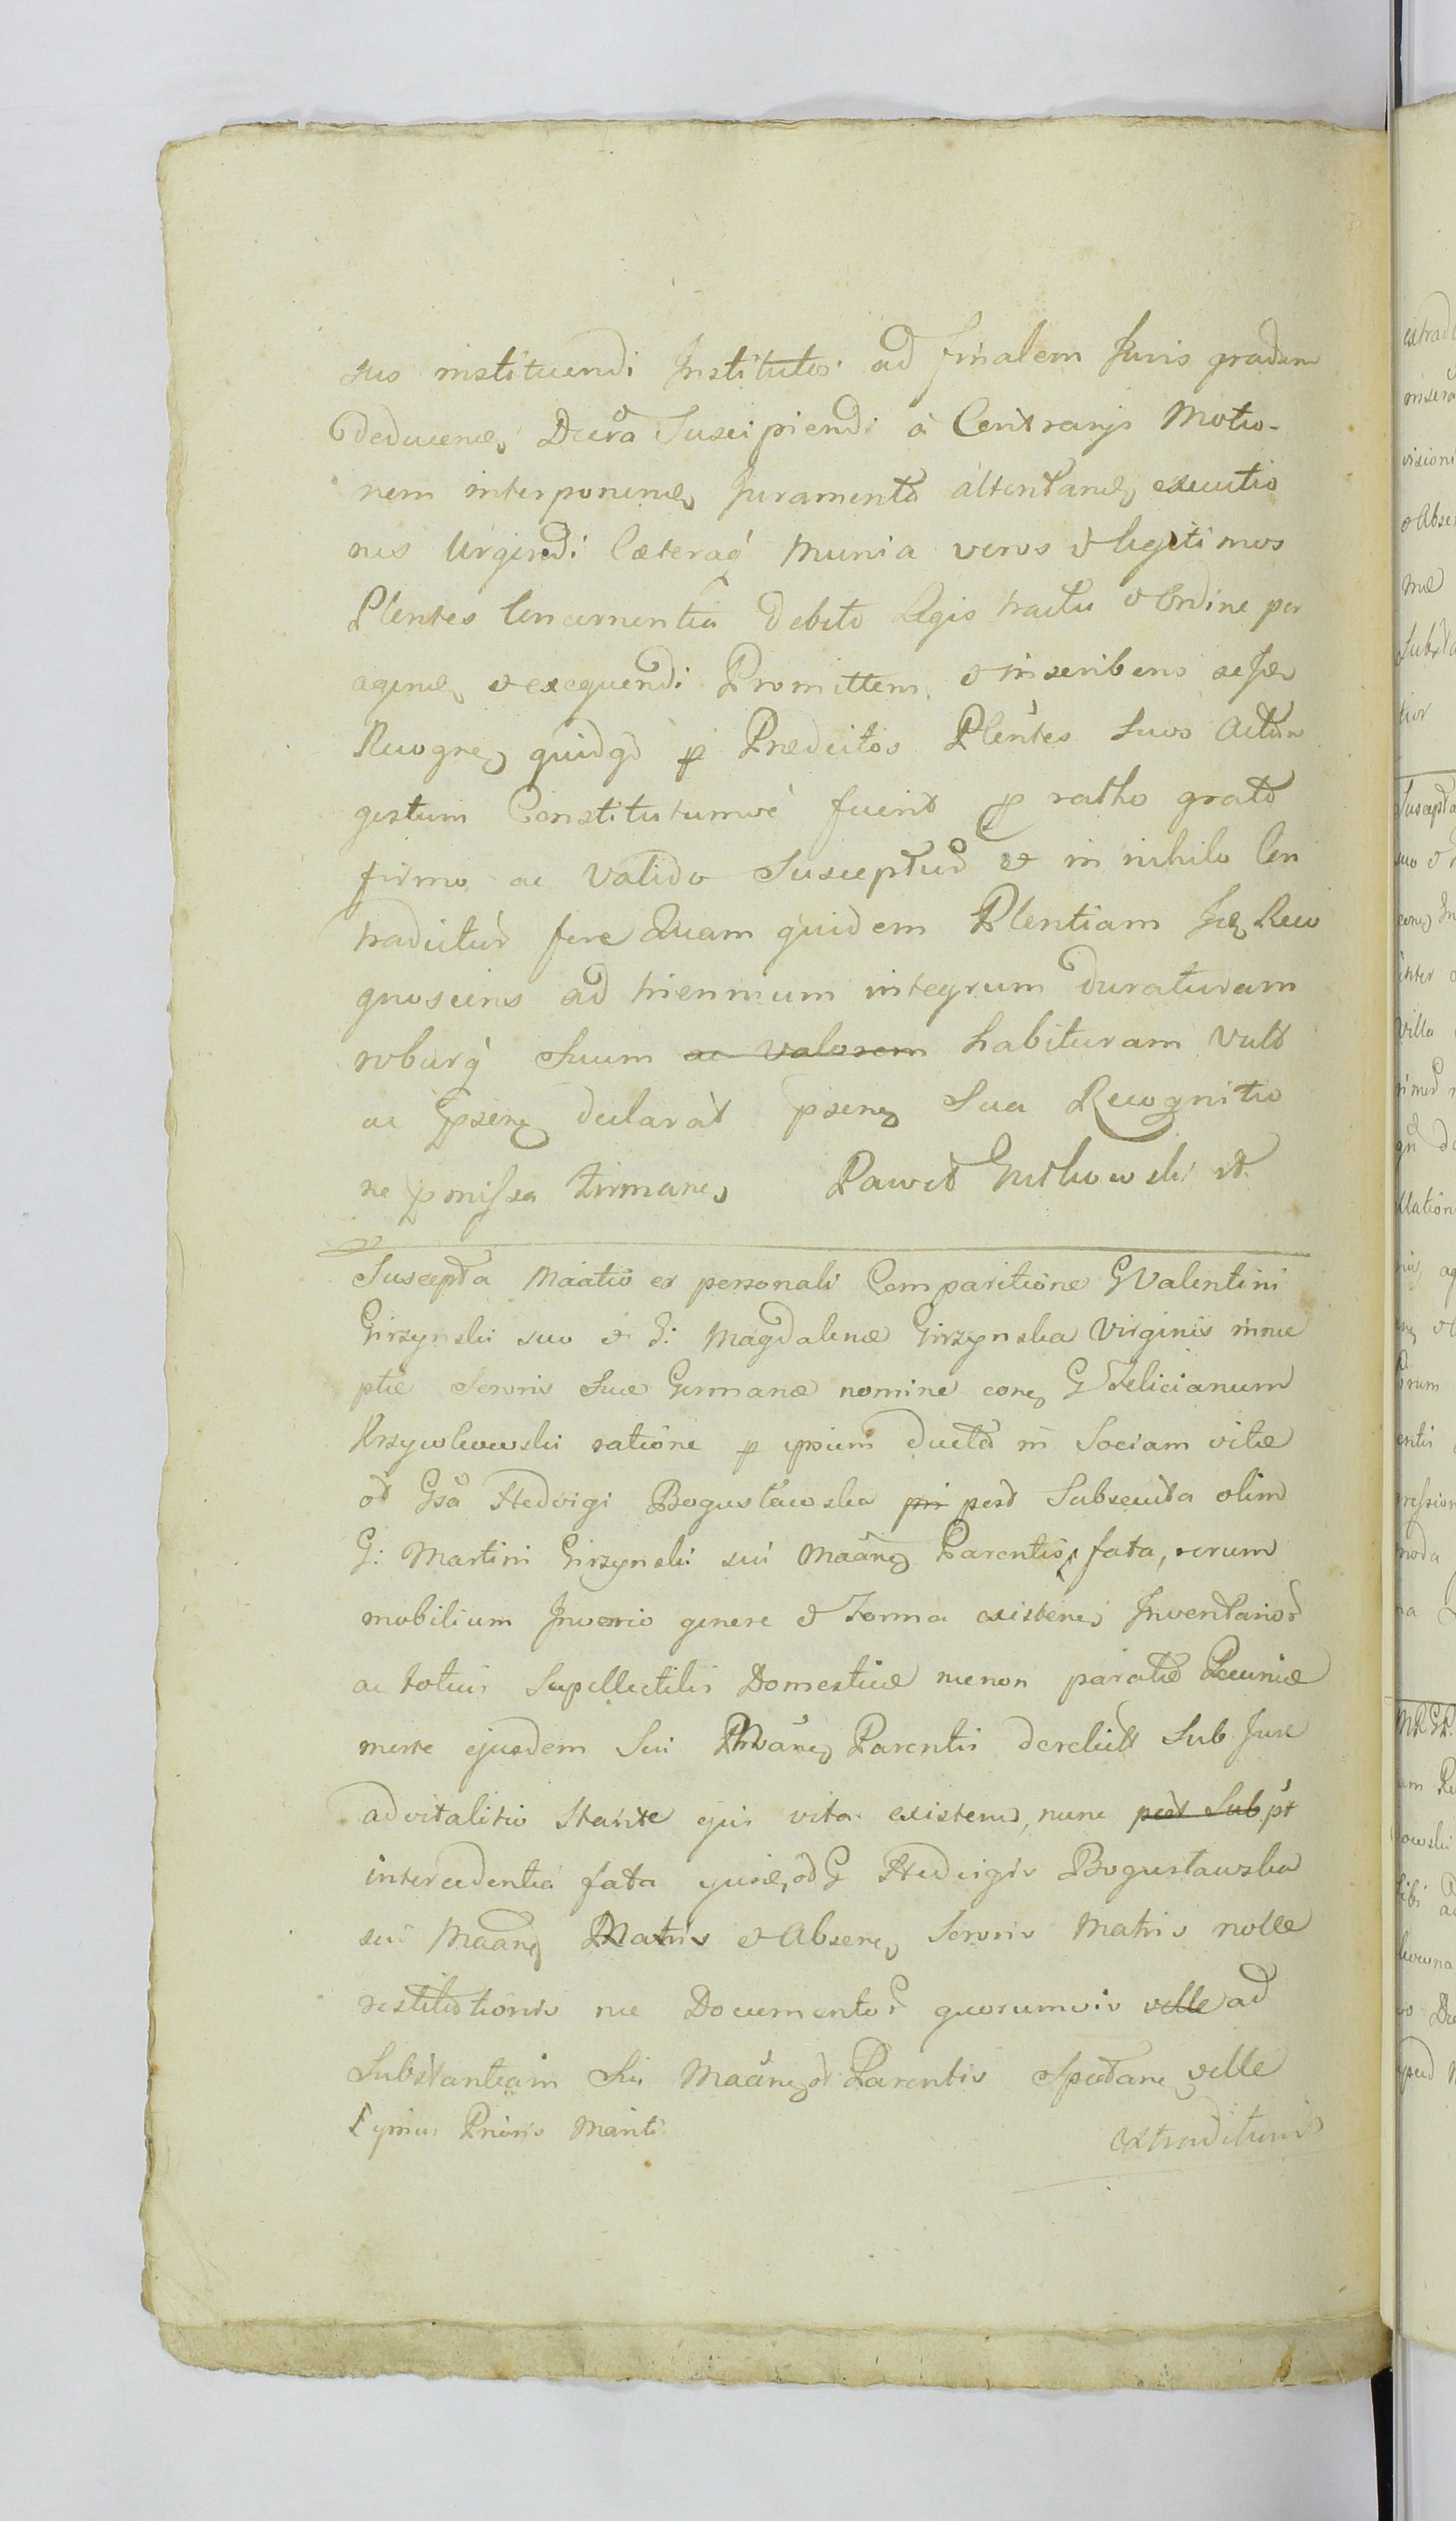 sus instituendi Institutos ad finalem Juris gradum
deducend Decra Suscipiendi à Contrarijs Motio-
nem interponend Juramenta attentand executio
nes Urgendi Cæteraq munia veros & legitimos
Plentes Concernentia debito Legis tractu & Ordine per
agend & exequendi Promittens & inscribens sese
Recogns quidqd p Prædictos Plentes Suos Actum
gestum Constitutumvè fuerit p ratho grato
firmo ac valido Suscepturũ & in nihilo Con
tradictur fore Quam quidem Plentiam Recog
gnoscens ad triennium integrum duraturam
roburq Suum ac valorem habituram vult
ac psens declarat psens Sua Recognitio
ne pmissa firmans Paweł Gutkowski
Suscepta Maatio ex personali Comparitione G Valentini
Girzynski suo & G: Magdalenæ Girzynska Virginis innu
ptæ Sororis Suæ Germanæ nomine cons G Felicianum
Krzywkowski ratione p ipsum ducta in Sociam vitæ
Gsa Hedvigi Bogusławska pri post Subsecuta olim
G: Martini Girzynski sui Maans Parentis fata, rerum
mobilium Inverio genere & Forma existens Inventarior
ac totius Supellectilis Domesticæ necnon paratæ Pecuniæ
morte ejusdem Sui Maans Parentis derelict Sub Jure
advitalitio Stante ejus vita existens, nunc post Sub pt
intercedentia fata ejusd, G Hedvigis Bogusławska
sui Maans Matris & Absens Sororis Matris nolle
restitutionis nec Documentor quorumvis velle ad
Substantiam Sui Maans Parentis Spectans velle
ipsius Prioris Mariti
extraditioni